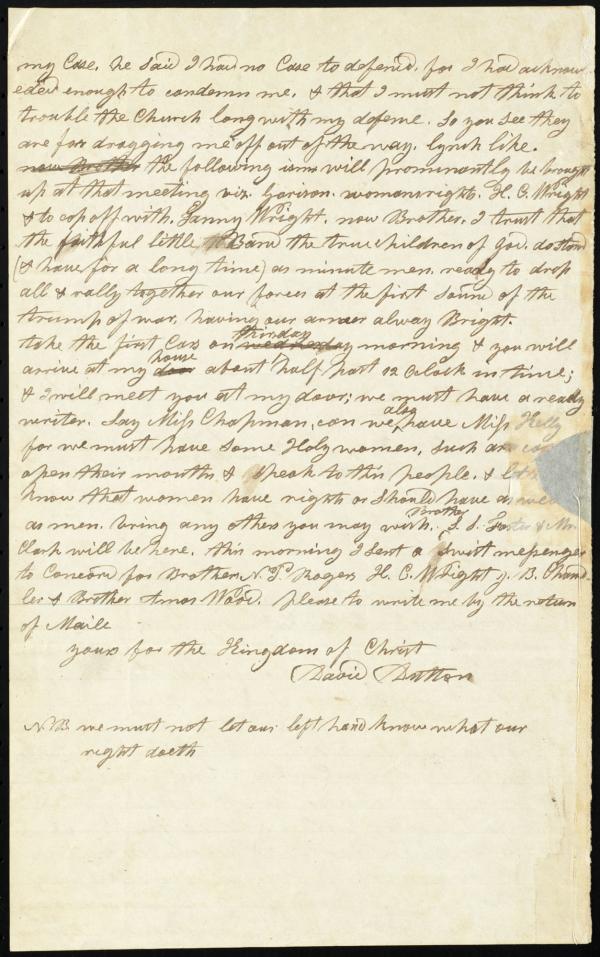 my Case. he said I had no Case to defend. for I had acknow
edged enough to condemn me. & that I must not think to
trouble the Church long with my defense. So you see they
are for dragging me off out of the way. lynch like.
now Brother the following isms will prominantly be brought
up at that meeting viz. Garison. womans rights. H. C. Wright
& to cop off with. Fanny Wright. now Brother. I trust that
the faithful little Band the true children of God. do stand
(& have for a long time) as minute men. ready to drop
all & rally together our forces at the first sound of the
trump of war. having our armer alway Bright.
take the first Cars on wednesday thirsday morning & you will
arrive at my door house about half past 12 Oclock in time;
& I will meet you at my door; we must have a ready
writer. Say Miss Chapman. can we also have Miss Kelly
for we must have some Holy women. such as
open their mouths & speak to this people. &
know that women have rights or should have as well
as men. bring any others you may wish. Brother S. S. Foster & Mr.
Clark will be here. this morning I sent a swift messenger
to Concord for Brother N. P. Rogers H. C. Wright J. B. Chand-
ler & Brother Amos Wood. please to write me by the return
of Maile
yours for the Kingdom of Christ
David Dutton
NB we must not let our left hand know what our
right doeth